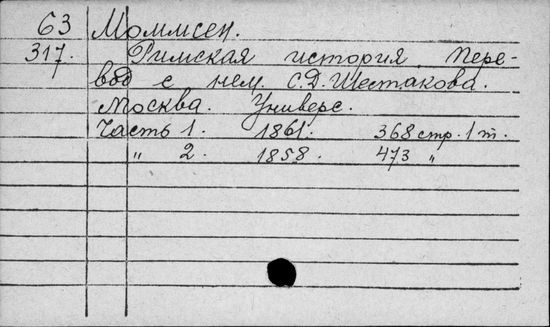 63 Моммсен.
317. Римская история. Пере-
вод с нем. С.Д. Шестакова.
Москва. Универс.
Часть 1. 1861. 368 стр. 1 т.
„ 2. 1858. 473 „